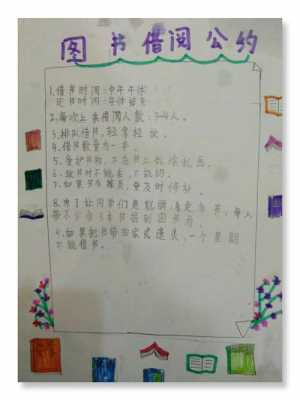 图书借阅公约
1.借书时间:中午午休
还书时间:午休结束
2.每次上来借阅人数:3-4人。
3.排队借书,轻拿轻放。
4.借书数量为一本。
5.爱护书籍,不在书上乱涂乱画。
6.放书时不能丢,不能扔。
7.如果书有损员,要及时修补。
8.为了让同学们更聪明,看更多书,每人
带不少于3本书
9.如果把书带回家或遗失,一个星期
不能借书。